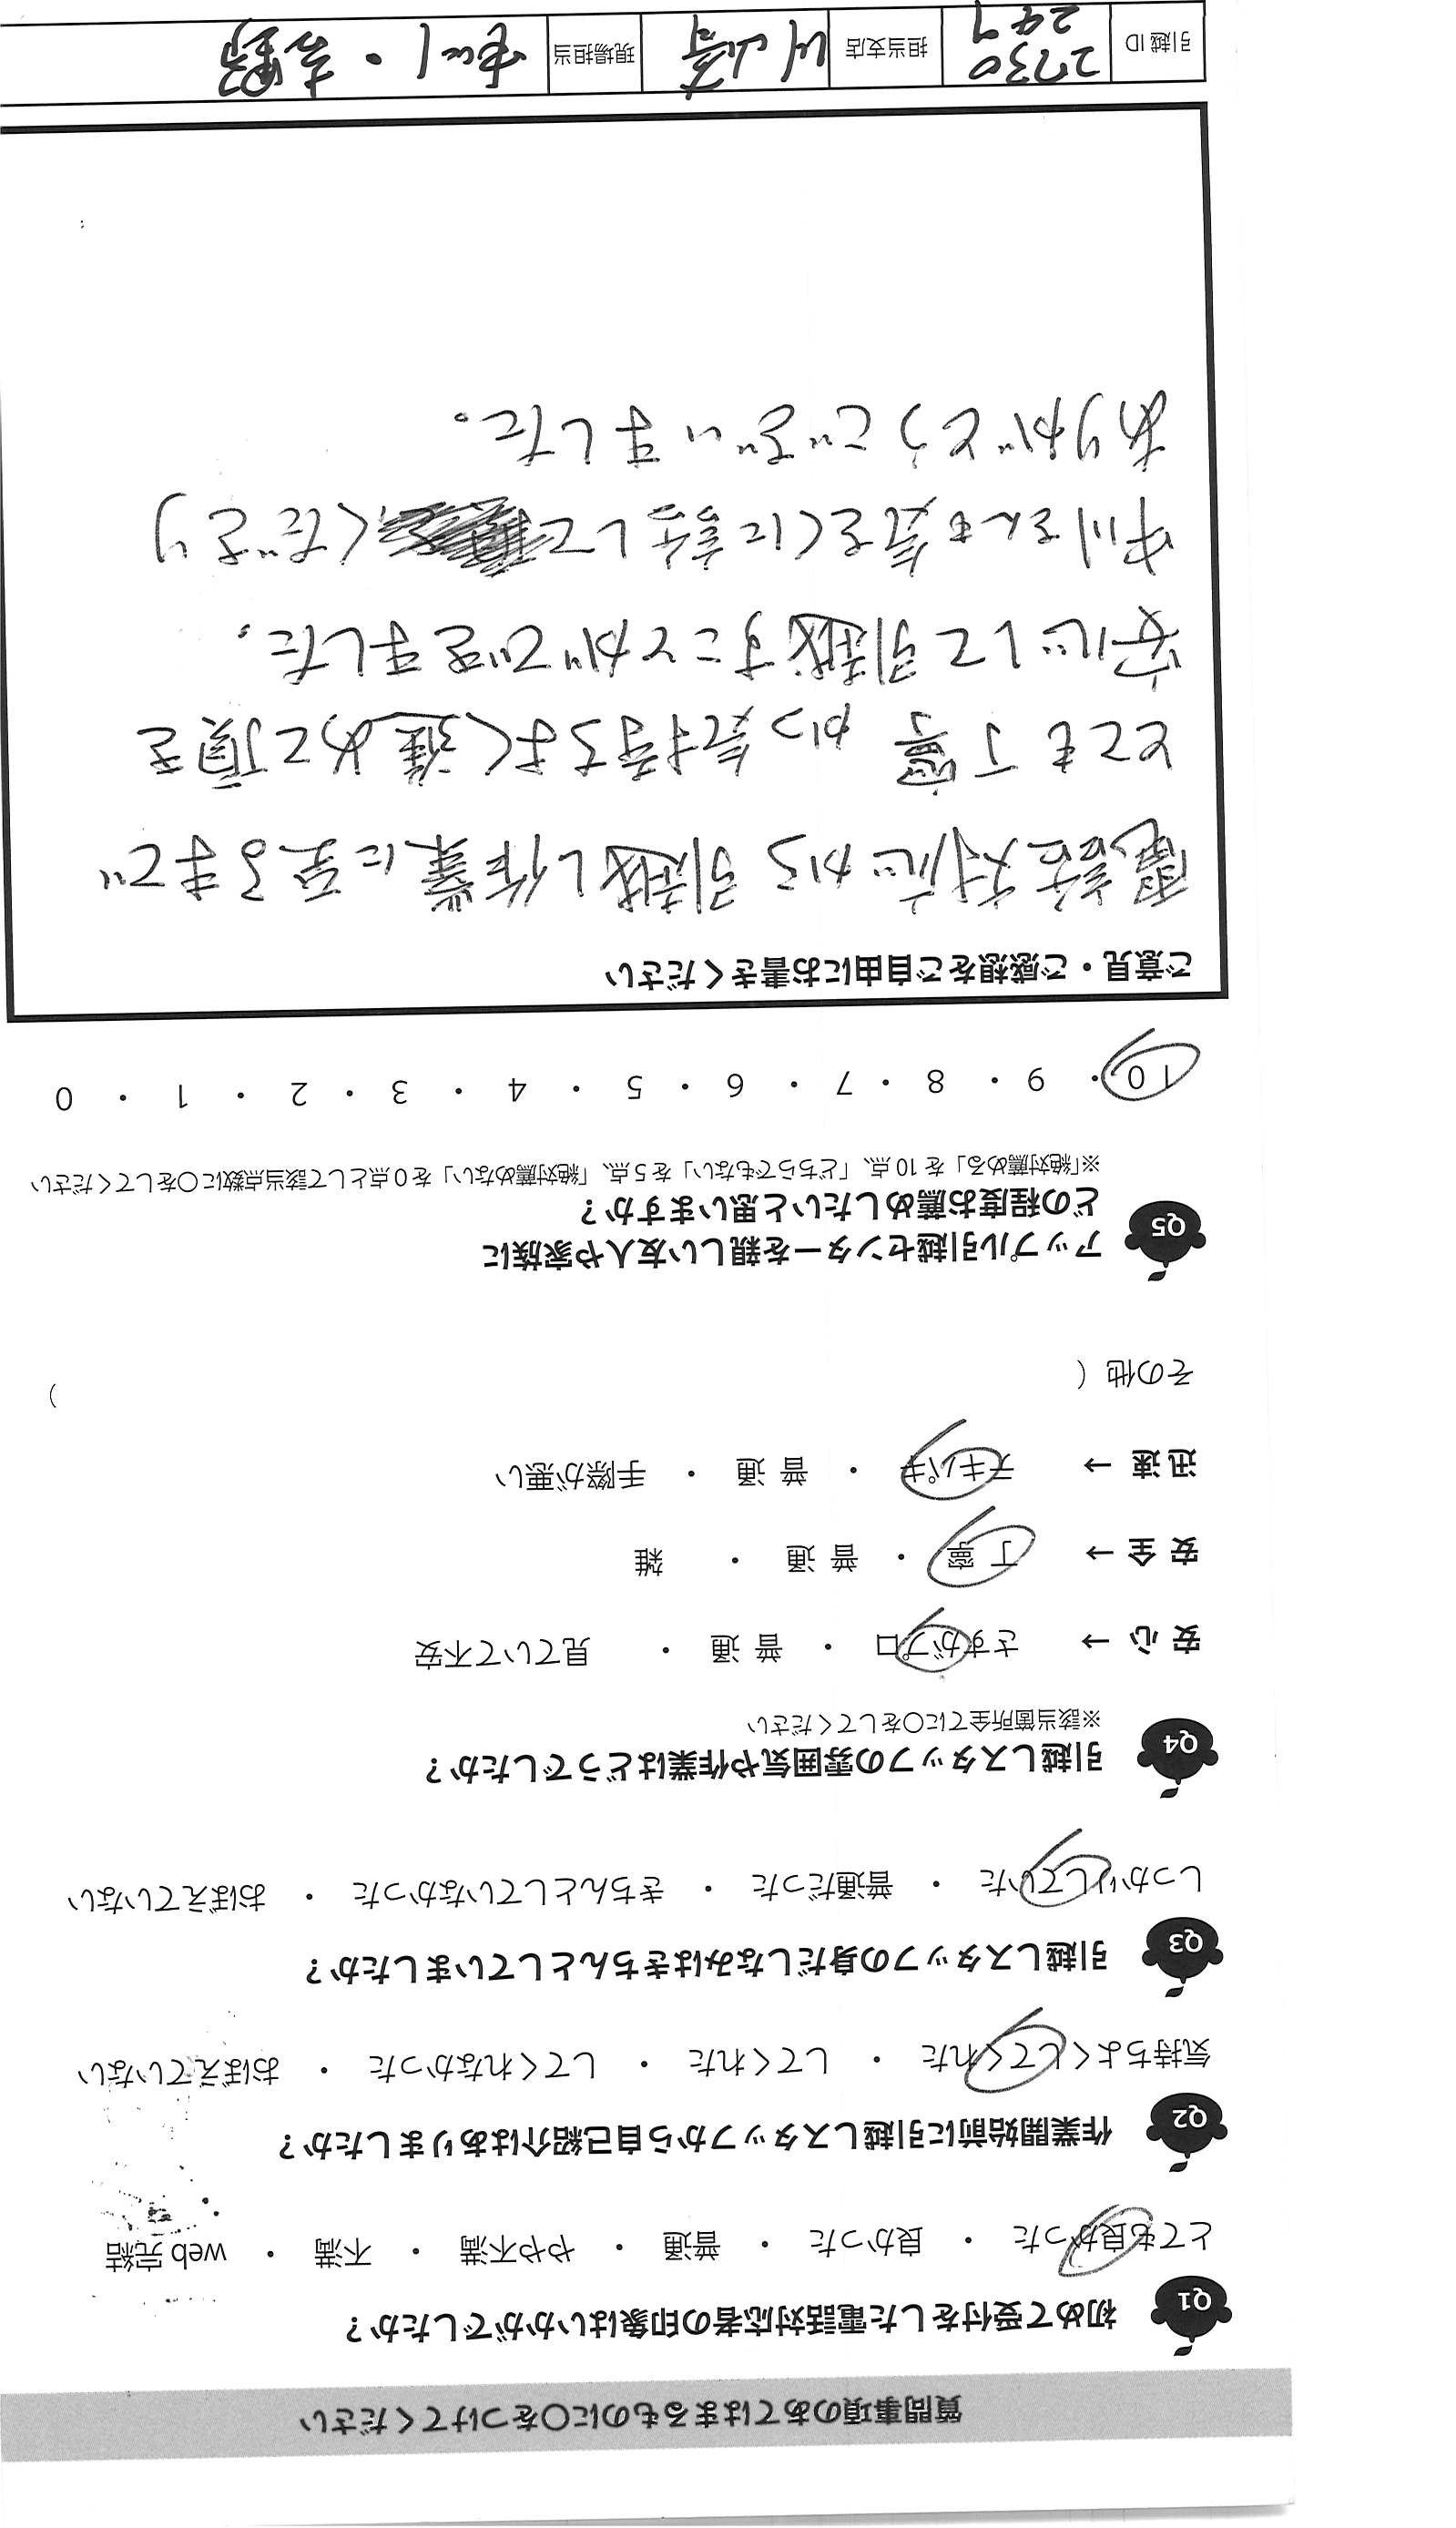 質問事項のあてはまるものに〇をつけてください
Q1 初めて受付をした電話対応者の印象はいかがでしたか?
とても良かった ・ 良かった ・ 普通 ・ やや不満 ・ 不満 ・ web 完結
Q2 作業開始前に引越しスタッフから自己紹介はありましたか?
気持ちよくしてくれた ・ してくれた ・ してくれなかった ・ おぼえていない
Q3 引越しスタッフの身だしなみはきちんとしていましたか?
しっかりしていた ・ 普通だった ・ きちんとしていなかった ・ おぼえていない
Q4 引越しスタッフの雰囲気や作業はどうでしたか?
※該当箇所全てに〇をしてください
安心 → さすがプロ ・ 普通 ・ 見ていて不安
安全 → 丁寧 ・ 普通 ・ 雑
迅速 → テキパキ ・ 普通 ・ 手際が悪い
その他 ( )
Q5 アップル引越センターを親しい友人や家族に
どの程度お薦めしたいと思いますか?
※「絶対薦める」を 10 点、「どちらでもない」を 5 点、「絶対薦めない」を 0 点として該当点数に〇をしてください
10 ・ 9 ・ 8 ・ 7 ・ 6 ・ 5 ・ 4 ・ 3 ・ 2 ・ 1 ・ 0
ご意見・ご感想をご自由にお書きください
電話対応から引越し作業に至るまで
とても丁寧かつ気持ちよく進めて頂き
安心して引越すことができました。
中川さんも気さくに話してくださり
ありがとうございました。
引越 ID 2730 担当支店 川崎 現場担当 中川・吉野
247